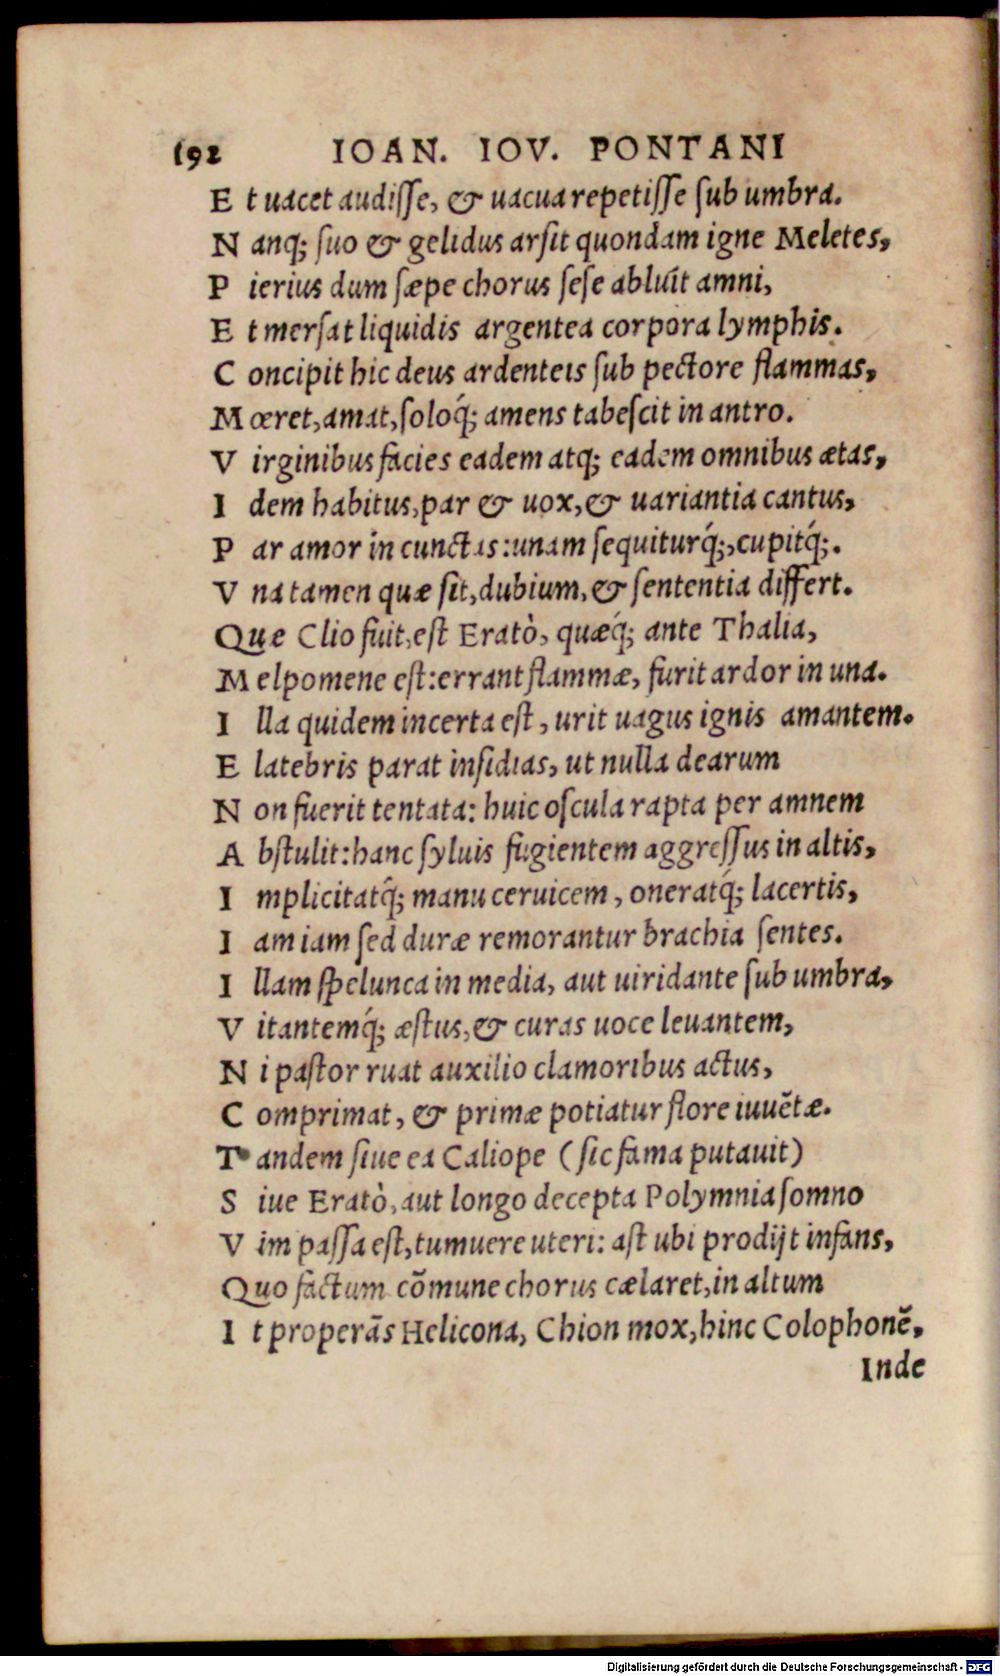 192 IOAN. IOV. PONTANI
Et uacet audiſſe, & uacua repetiſſe ſub umbra.
Nanq; ſuo & gelidus arſit quondam igne Meletes,
Pierius dum ſæpe chorus ſeſe abluit amni,
Et merſat liquidis argentea corpora lymphis.
Concipit hic deus ardenteis ſub pectore flammas,
Mœret, amat, ſoloq́; amens tabeſcit in antro.
Virginibus facies eadem atq; eadem omnibus ætas,
Idem habitus, par & uox, & uariantia cantus,
Par amor in cunctas: unam ſequiturq́;, cupitq́;.
Vna tamen quæ ſit, dubium, & ſententia differt.
Que Clio fuit, eſt Eratò, quæq́; ante Thalia,
Melpomene eſt: errant flammæ, furit ardor in una.
Illa quidem incerta eſt, urit uagus ignis amantem.
E latebris parat inſidias, ut nulla dearum
Non fuerit tentata: huic oſcula rapta per amnem
Abſtulit: hanc ſyluis fugientem aggreſſus in altis,
Implicitatq̃; manu ceruicem, oneratq́; lacertis,
Iam iam ſed duræ remorantur brachia ſentes.
Illam ſpelunca in media, aut uiridante ſub umbra,
Vitantemq́; æſtus, & curas uoce leuantem,
Ni paſtor ruat auxilio clamoribus actus,
Comprimat, & primæ potiatur flore iuuẽtæ.
Tandem ſiue ea Caliope (ſic fama putauit)
Siue Eratò, aut longo decepta Polymnia ſomno
Vim paſſa eſt, tumuere uteri: aſt ubi prodijt infans,
Quo factum cõmune chorus cælaret, in altum
It properãs Helicona, Chion mox, hinc Colophonẽ,
Inde
Digitalisierung gefördert durch die Deutsche Forschungsgemeinschaft - DFG